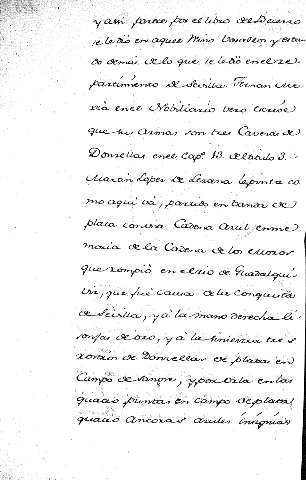 y assi parece por el libro del Becerro
se le dió en aquel Reino
demás de lo que se le dió en el re-
partimiento de Sevilla Fernan Me-
xia en el Nobiliario vero escrive
que sus Armas son tres Caveras de
Donsellas en el Cap.º 13. del titulo 3.
Maran Lopes de Lesana la pinta co
mo aqui vá, partido en banda de
plata con una Cadena Azul en me-
moria de la Cadena de los moros
que rompió en el rio de Guadalqui
vir, que fué causa de la Conquista
de Sevilla, y á la mano derecha
de oro, y á la siniestra tres
rostros de Donsellas de plata en
Campo de sangre, y por orla en las
quatro puntas en campo de plata
quatro Ancoras azules insignias